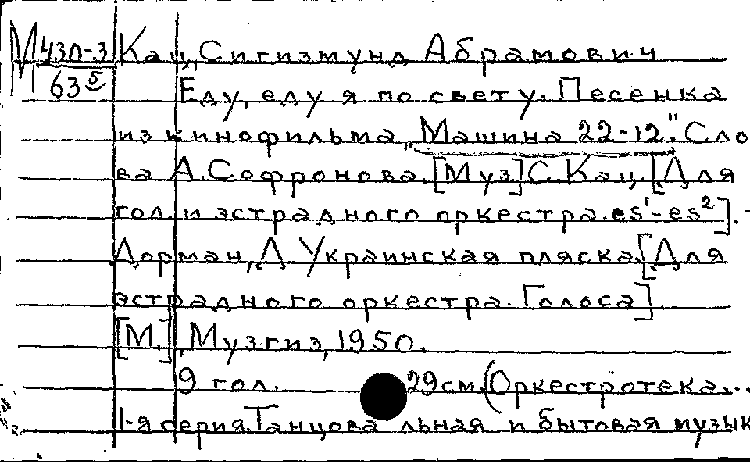 М 430-3 Кац, Сигизмунд Абрамович
63⁵ Еду, еду я по свету. Песенка
из кинофильма „Машина 22-12". Сло
ва А. Софронова. [Муз] С. Кац. [Для
гол. и эстрадного оркестра. es¹-es²]. -
Дорман, Л. Украинская пляска. [Для
эстрадного оркестра. Голоса]
[М.], Музгиз, 1950.
9 гол. 29см. (Оркестротека...
1-я серия. Танцевальная и бытовая музык